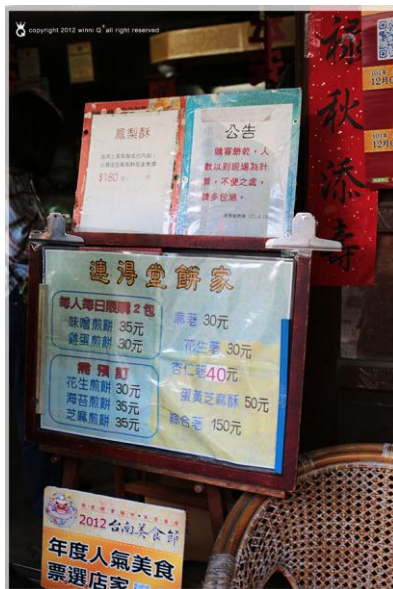 copyright 2012 winni Q all right reserved
鳳梨酥
$180元
公告
購買餅乾，人
數以到現場為計
算，不便之處，
請多包涵。
祿秋添壽
101年
12月0
101年
12月0
連得堂餅家
每人每日限購2包
味噌煎餅 35元
雞蛋煎餅 30元
需預訂
花生煎餅 30元
海苔煎餅 35元
芝麻煎餅 35元
席荖 30元
花生荖 30元
杏仁荖 40元
蛋黃芝麻酥 50元
綜合荖 150元
2012台南美食節
年度人氣美食
票選店家